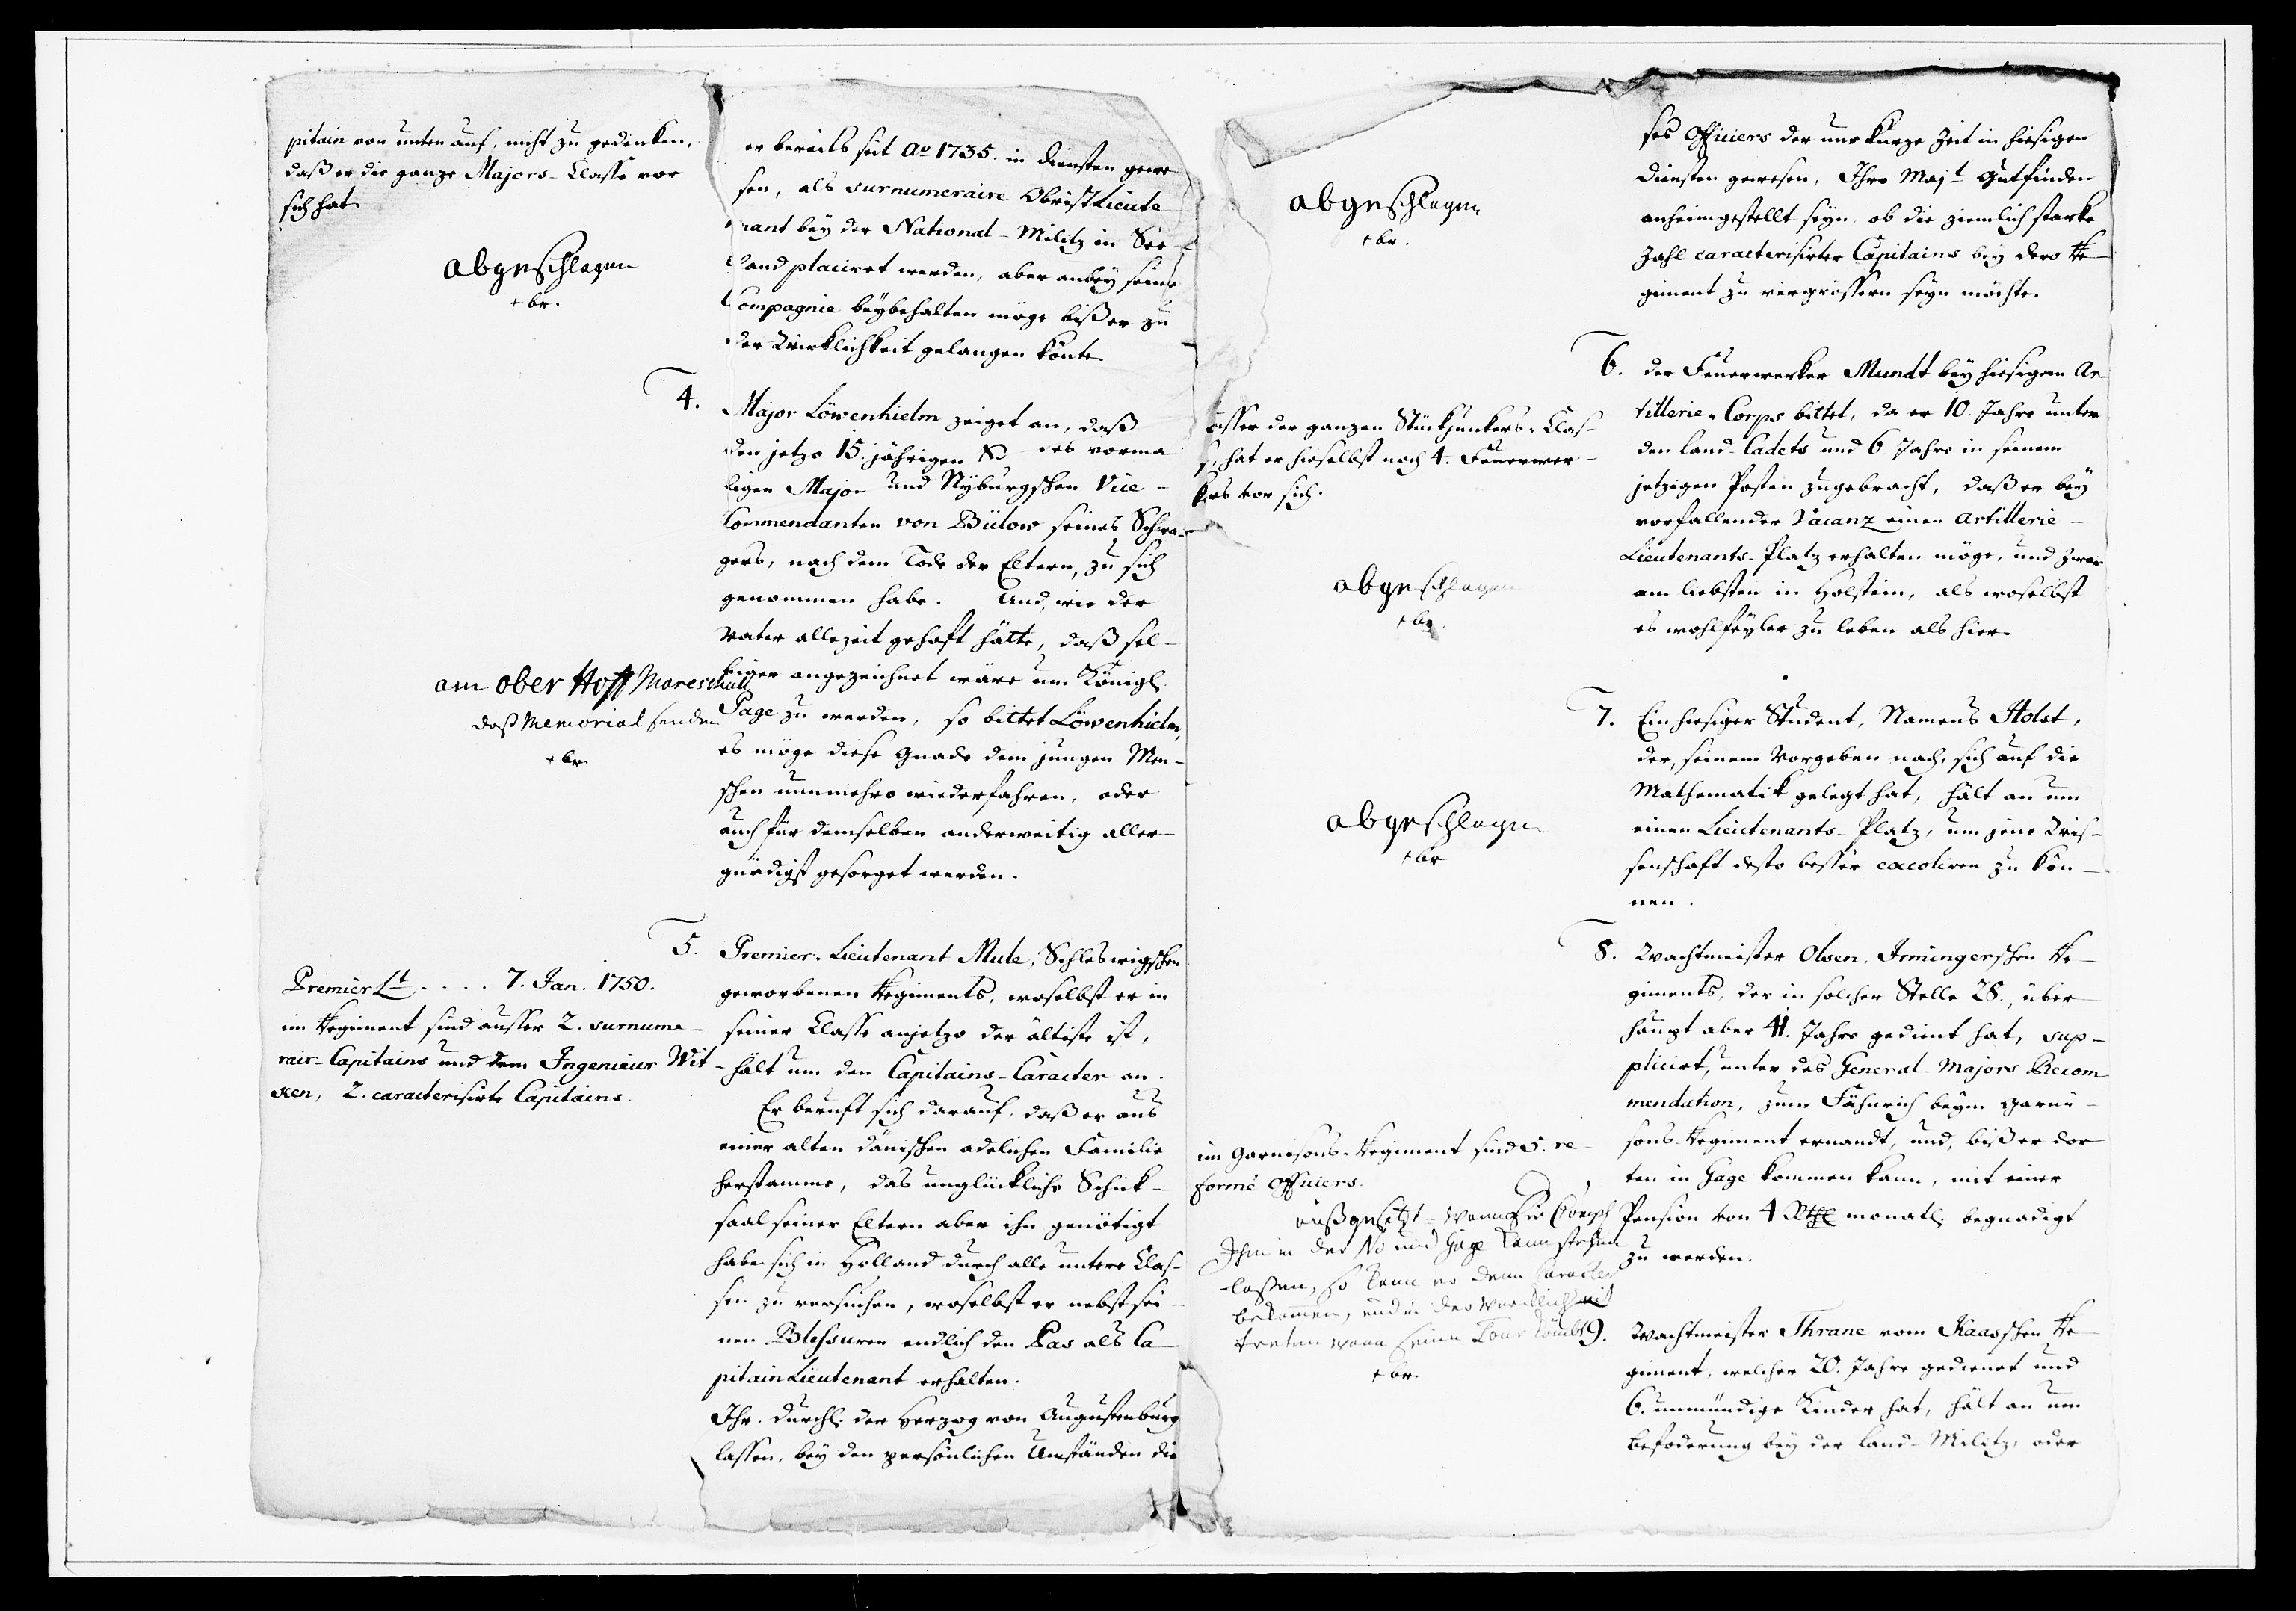 pitain von unten auf, nicht zu gedenken,
daß er die ganze Majors-Classe vor
sich hat.
abgeschlagen
+ br.
er bereits seit Ao 1735. in Diensten gewe
sen, als surnumeraire ObristLieute
nant bey der National-Militz in See-
land placiret werden, aber anbey seine
Compagnie beybehalten möge biß er zu
der Würklichkeit gelangen könte.
4.
Major Löwenhielm zeiget an, daß
den jetzo 15. jährigen des vorma
ligen Major und Nyburgschen Vice-
Commendanten von Bülow seines Schwa-
gers, nach dem Tode der Eltern, zu sich
genommen habe. Und, wie der
Vater allezeit gehoft hätte, daß sel-
biger angezeichnet wäre um Königl.
Page zu werden, so bittet Löwenhielm,
es möge diese Gnade dem jungen Men-
schen nunmehro wiederfahren, oder
auch für demselben anderweitig aller-
gnädigst gesorget werden.
am ober Hoff Mareschall
daß Memorial senden
+ br.
5.
Premier-Lieutenant Mule, Schleswigschen
geworbenen Regiments, woselbst er in
seiner Classe anjetzo der älteste ist,
hält um den Capitains-Caracter an.
Er beruft sich darauf, daß er aus
einer alten dänischen adelichen Familie
herstamme, das unglückliche Schick-
saal seiner Eltern aber ihn genötigt
habe sich in Holland durch alle untere Clas-
sen zu versuchen, woselbst er nebst sei-
nen Blessuren endlich den Pas als Ca-
pitain Lieutenant erhalten.
Ihr. Durchl. der Herzog von Augustenburg
lassen, bey den persönlichen Umständen die
Premier Lt. . . . . 7. Jan. 1750.
im Regiment sind ausser 2. surnume-
rair-Capitains und dem Ingenieur Wit-
xen, 2. caracterisirte Capitains.
ses Officiers der nur kurze Zeit in hiesigen
Diensten gewesen, Ihro Majt Gutfinden
anheimgestellt seyn, ob die ziemlich starke
Zahl caracterisirter Capitains bey dero Re-
giment zu vergrössern seyn möchte.
abgeschlagen
+ br.
6.
der Feuerwerker Mundt bey hiesigem Ar-
tillerie-Corps bittet, da er 10. Jahre unter
den Land-Cadets und 6 Jahre in seinem
jetzigen Posten zugebracht, daß er bey
vorfallender Vacanz einen Artillerie-
Lieutenants-Platz erhalten möge, und zwar
am liebsten in Holstein, als woselbst
es wohlfeyler zu leben als hier.
ausser der ganzen Stückjunkers-Clas-
se, hat er hieselbst noch 4. Feuerwer-
kers vor sich.
abgeschlagen
+ br.
7.
Ein hiesiger Student, Namens Holst,
der, seinem Vorgeben nach, sich auf die
Mathematik gelegt hat, hält an um
einen Lieutenants-Platz, um jene Wis-
senschaft desto besser excoliren zu kön-
nen.
abgeschlagen
+ br
8.
Wachtmeister Olsen, Irmingerschen Re-
giments, der in solcher Stelle 28., über
haupt aber 41. Jahre gedient hat, sup-
plicirt, unter des General-Majors Recom
mendation, zum Fähnrich beym Garni-
sons-Regiment ernandt, und, biß er dor
ten in Gage kommen kann, mit einer
Pension von 4 Rthl monatl. begnadigt
zu werden.
im Garnisons-Regiment sind 5. re-
formé Officiers.
außgesetzt - wann Ein Comph
Ihm in der No und Gage kann stehen
laßen, so kann er denn Caracter
bekommen, und in der Würcklichkeit
treten wann seine Tour kömbt
+ br.
9.
Wachtmeister Thrane vom Kaasschen Re-
giment, welcher 20. Jahre gedienet und
6. unmündige Kinder hat, hält an um
Beförderung bey der Land-Militz, oder